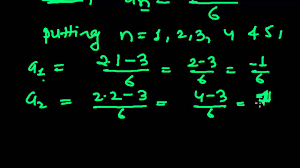 aₙ = /6
putting n = 1, 2, 3, 4 4 5,
a₁ = 2·1-3/6 = 2-3/6 = -1/6
a₂ = 2·2-3/6 = 4-3/6 =